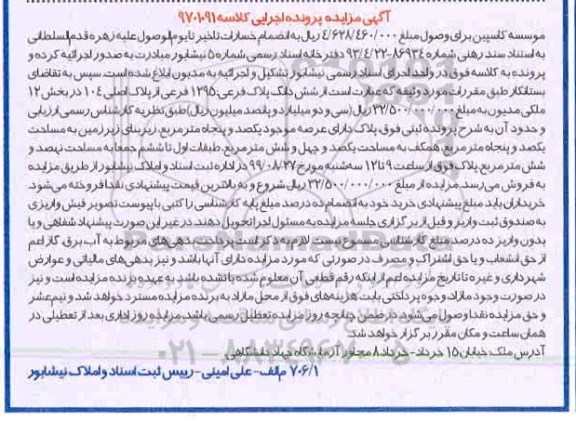 آگهی مزایده پرونده اجرایی کلاسه ۹۷۰۱۰۹۱
موسسه کاسپین برای وصول مبلغ ۴/۶۲۸/۴۶۰/۰۰۰ ریال به انضمام خسارات تاخیر تا یوم الوصول علیه زهره قدم السلطانی
به استناد سند رهنی شماره ۸۶۹۳۴-۹۳/۴/۲۲ دفترخانه اسناد رسمی شماره ۵ نیشابور مبادرت به صدور اجرائیه کرده و
پرونده به کلاسه فوق در واحد اجرای اسناد رسمی نیشابور تشکیل و اجرائیه به مدیون ابلاغ شده است. سپس به تقاضای
بستانکار طبق مقررات مورد وثیقه که عبارت است از شش دانگ پلاک فرعی ۱۲۹۵ فرعی از پلاک اصلی ۱۰۴ در بخش ۱۲
ملکی مدیون به مبلغ ۳۲/۵۰۰/۰۰۰/۰۰۰ ریال (سی و دو میلیارد و پانصد میلیون ریال) طبق نظریه کارشناس رسمی ارزیابی
و حدود آن به شرح پرونده ثبتی فوق پلاک دارای عرصه موجود یکصد و پنجاه متر مربع، زیربنای زیرزمین به مساحت
یکصد و پنجاه متر مربع، همکف به مساحت یکصد و چهل و شش متر مربع، طبقات اول تا ششم جمعا به مساحت نهصد و
شش متر مربع پلاک فوق از ساعت ۹ تا ۱۲ سه شنبه مورخ ۹۹/۰۸/۲۷ در اداره ثبت اسناد و املاک نیشابور از طریق مزایده
به فروش می رسد. مزایده از مبلغ ۳۲/۵۰۰/۰۰۰/۰۰۰ ریال شروع و به بالاترین قیمت پیشنهادی نقدا فروخته می شود.
خریداران باید مبلغ پیشنهادی خرید خود به انضمام ده درصد مبلغ پایه کارشناسی را کتبی با پیوست تصویر فیش واریزی
به صندوق ثبت واریز و قبل از برگزاری جلسه مزایده به مسئول اجرا تحویل دهند. در غیر این صورت پیشنهاد شفاهی و یا
بدون واریز ده درصد مبلغ کارشناسی مسموع نیست. لازم به ذکر است پرداخت بدهی های مربوط به آب، برق، گاز اعم
از حق انشعاب و یا حق اشتراک و مصرف در صورتی که مورد مزایده دارای آنها باشد و نیز بدهی های مالیاتی و عوارض
شهرداری و غیره تا تاریخ مزایده اعم از اینکه رقم قطعی آن معلوم شده یا نشده باشد به عهده برنده مزایده است و نیز
در صورت وجود مازاد وجوه پرداختی بابت هزینه های فوق از محل مازاد به برنده مزایده مسترد خواهد شد و نیم عشر
و حق مزایده نقدا وصول می شود. در ضمن چنانچه روز مزایده تعطیل رسمی باشد، مزایده روز اداری بعد از تعطیلی در
همان ساعت و مکان مقرر برگزار خواهد شد.
آدرس ملک خیابان ۱۵ خرداد - خرداد ۸ مجاور آزمایشگاه جهاد دانشگاهی
۷۰۶/۱ م الف - علی امینی - رییس ثبت اسناد و املاک نیشابور
۰۲۱-۸۸۳۴۹۶۷۰-۵